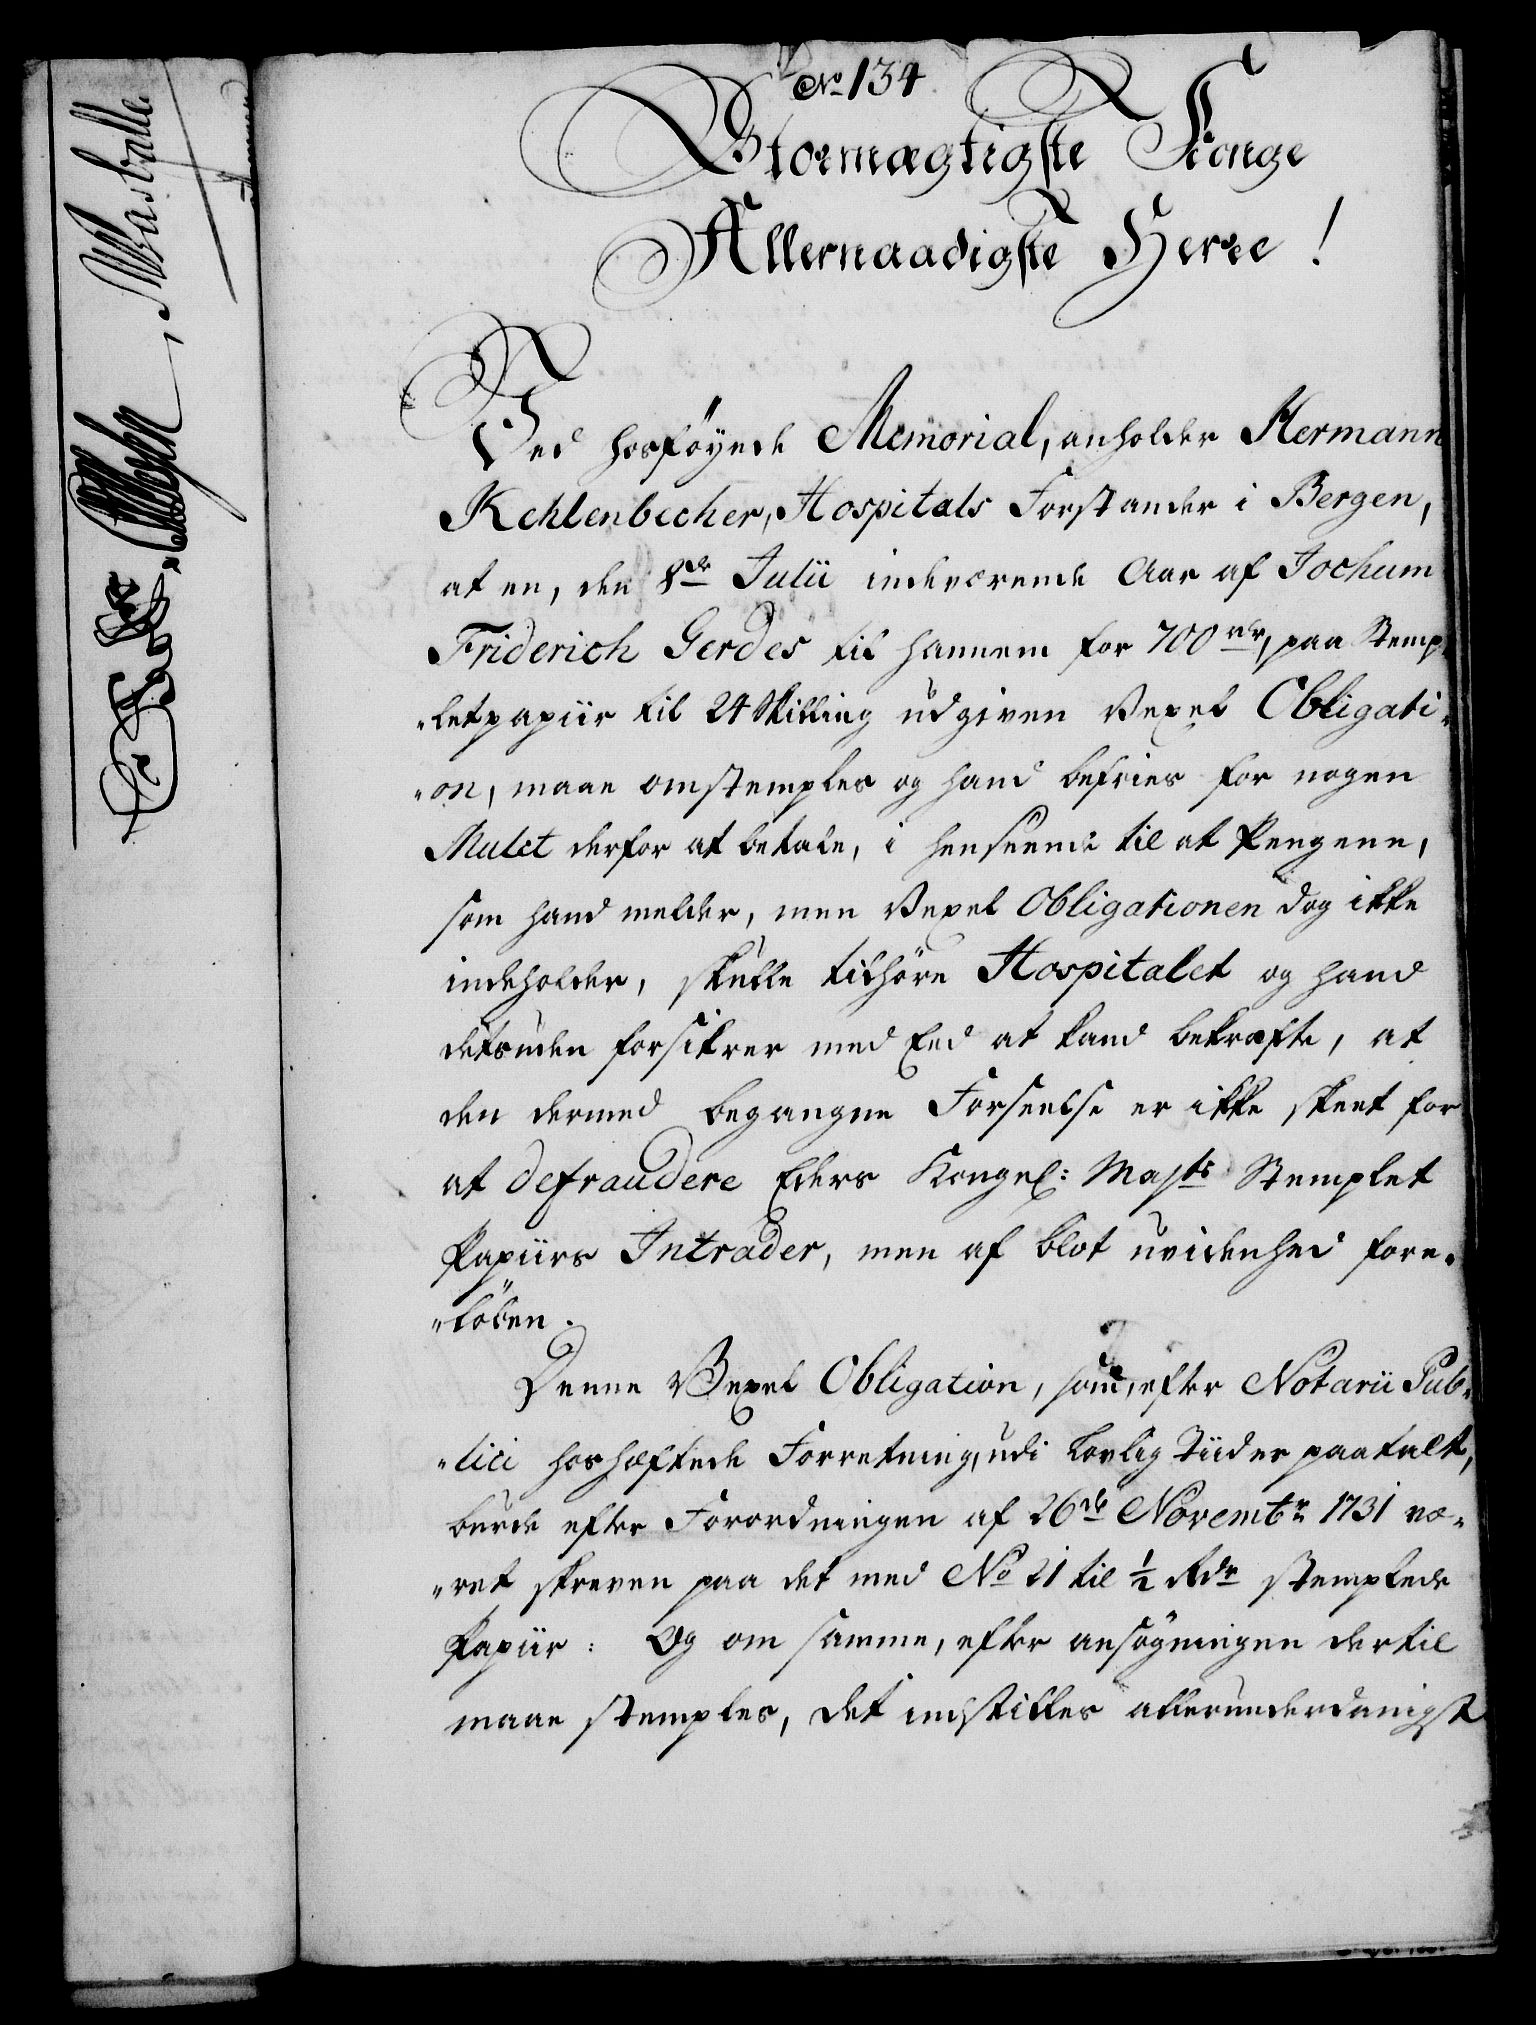 No 134
Stormægtigste Konge
Allernaadigste Herre!
Ved hosføyede Memorial, anholder Hermann
Kehlenbecher, Hospitals Forstander i Bergen,
at en, den 8de Julii indeværende Aar af Jochum
Friderich Gerdes til hannem for 700 rdr, paa Stemp-
"letpapiir til 24 Skilling udgiven Vexel Obligati-
"on, maae omstemples og hand befries for nogen
Mulct derfor at betale, i henseende til at Pengene,
som hand melder, men Vexel Obligationen dog ikke
indeholder, skulle tilhøre Hospitalet og hand
desuden forsikrer med Eed at kand bekræfte, at
den dermed begangne Forseelse er ikke skeet for
at defraudere Eders Kongel: Majts Stemplet
Papiirs Intrader, men af blot uvidenhed fore-
"løben.
Denne Vexel Obligation, som, efter Notarii Pub-
"lici hoshæftede Forretning, udi lovlig Tiider paatalt,
burde efter Forordningen af 26de Novembr 1731 væ-
"ret skreven paa det med No 21 til ½ Rdr stemplede
Papiir: Og om samme, efter ansøgningen dertil
maae stemples, det indstilles allerunderdanigst